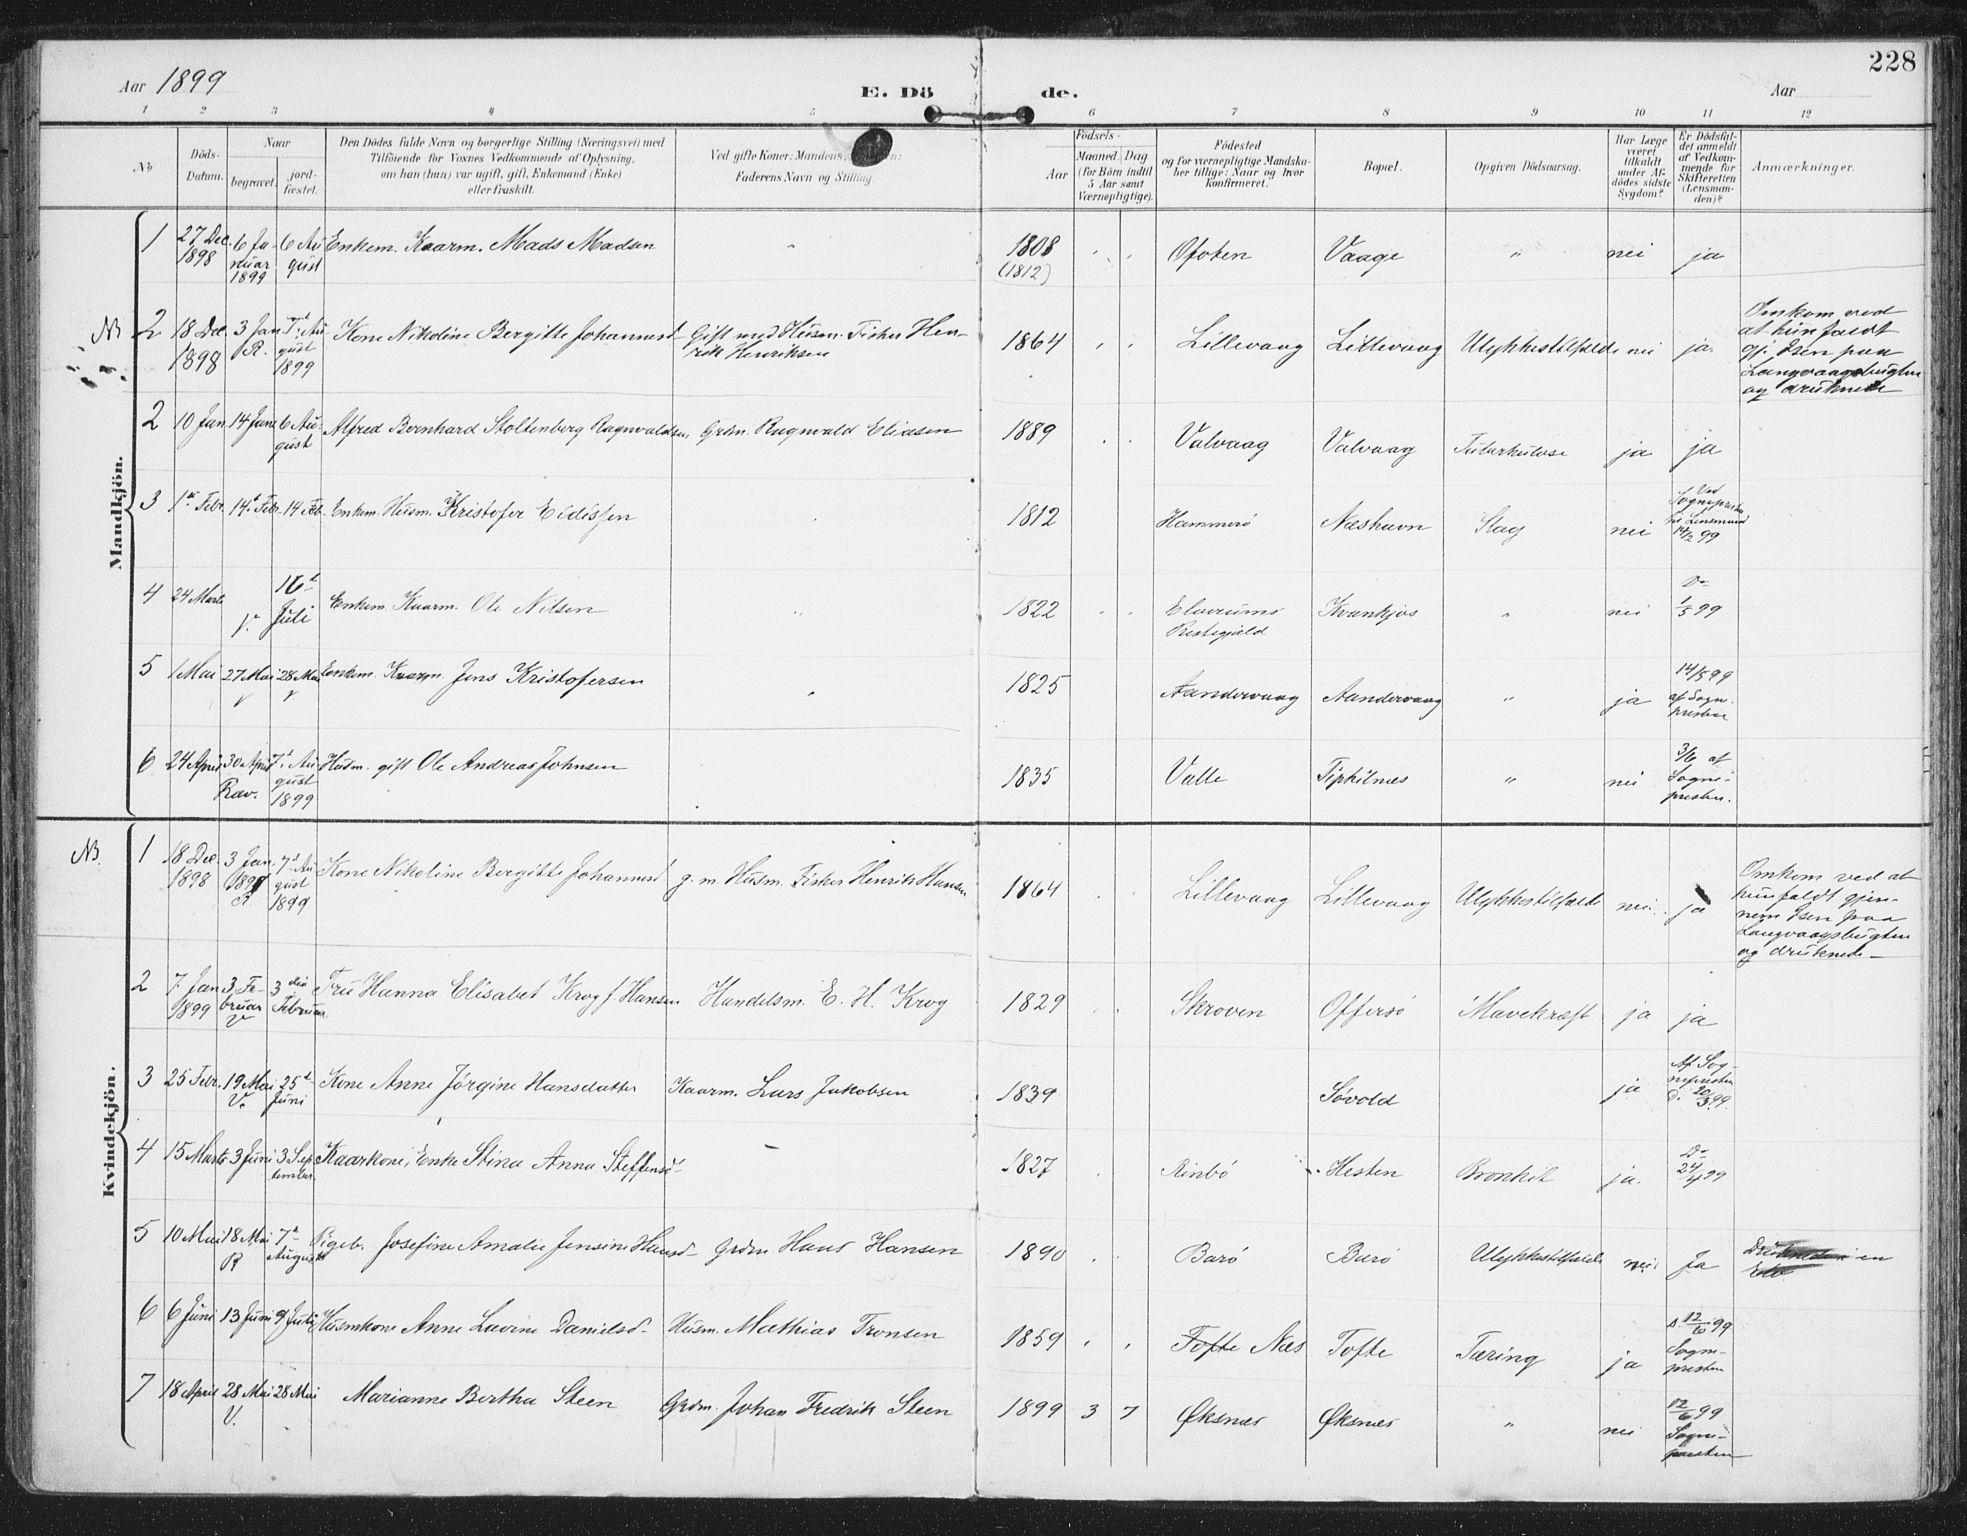 228
Aar 1899
E. Dö de.
Aar
1 2 3 4 5 6 7 8 9 10 11 12
No
Döds-Datum.
Naar
begravet. jordfæstet.
Den Dödes fulde Navn og borgerlige Stilling (Næringsvei) med
Tilföiende for Voxnes Vedkommende af Oplysning,
om han (hun) var ugift, gift, Enkemand (Enke)
eller fraskilt.
Ved gifte Koner: Mandens,
Faderens Navn og Stilling.
Födsels-
Aar
Maaned. Dag
(for Börn indtil
5 Aar samt
Værnepligtige).
Födested
og for værnepligtige Mandskaber tillige: Naar og hvor
konfirmeret.
Bopæl.
Opgiven Dödsaarsag.
Har Læge
været
tilkaldt
under Afdödes sidste
Sygdom?
Er Dödsfaldet anmeldt
af Vedkommende for
Skifteretten
(Lensmanden)?
Anmærkninger.
Mandkjön.
1 27 Dec. 1898 6 Januar 1899 6 August Enkem. Kaarm. Mads Madsen " 1808 (1812) " " Ofoten Vaage " nei ja
NB 2 18 Dec. 1898 3 Jan. R. 7d August 1899 Kone Nikoline Bergitte Johannesd. Gift med Husm. Fisker Henrik Henriksen 1864 " " Lillevaag Lillevaag Ulykkestilfælde nei ja. Omkom ved
at hun faldt
gj. Isen paa
Langvaagsbugten
og druknede
2 10 Jan 14 Jan 6 August Alfred Bernhard Stoltenberg Ragnvaldsen Grdm. Ragnvald Eliasen 1889 " " Valvaag Valvaag Tuberkulose ja ja
3 1ste Febr. 14d Febr. 14 Feb. Enkem. Husm. Kristofer Eidissen " 1812 Hammerö Næshavn Slag nei Ved
Sognepresten
Lensmand
14/2 99
4 24 Marts V. 16d Juli Enkem. Kaarm. Ole Nilsen " 1822 " " Elverums
Prestegjeld Kvankjos " nei Do
1/5 99
5 1 Mai 27 Mai V 28 Mai Enkem. Kaarm. Jens Kristofersen " 1825 Aandervaag Aandervaag " ja 14/5 99
af Sogne-
presten
6 24 April 30 April Rav. 7d August 1899 Husm. gift Ole Andreas Johnsen 1835 Valle Tipkilnæs " nei 3/6 af
Sogne-
presten.
Kvindekjön.
NB. 1 18 Dec. 1898 3 Jan. 1899 R. 7d August 1899 Kone Nikoline Bergitte Johannesd. g. m. Husm. Fisker Henrik Hansen 1864 " Lillevaag Lillevaag Ulykkestilfælde nei. ja Omkom ved at
hun faldt gjen-
nem Isen paa
Langvaagsbugten
og druknede—
2 7 Jan 1899 3 Februar V 3die Februar Fru Hanna Elisabet Krog f. Hansen Handelsm. E. H. Krog 1829 " " Skroven Offersö Mavekræft ja ja
3 25 Febr. 19 Mai V. 25d Juni Kone Anne Jörgine Hansdatter Kaarm. Lars Jakobsen 1839 Sövold ja Af Sog-
nepresten
d. 20/3 99.
4 15 Marts 3 Juni 3 September. Kaarkone, Enke Stina Anna Steffensd. — 1827 " Rinbö Hesten Bronkit ja. Do
24/4 99
5 10 Mai 18 Mai R 7d August Pigeb. Josefine Amalie Jensine Hansd. Grdm. Hans Hansen 1890 " " Barö Barö Ulykkestilfælde nei Ja en
6 6 Juni 13 Juni 9 Juli Husmkone Anne Lovine Danielsd. Husm. Mathias Tronsen 1859 " " Tofte Næs Tofte Tæring ja d. 12/6 99
Sogne-
presten
7 18 April 28 Mai V. 28 Mai Marianne Bertha Steen Grdm. Johan Fredrik Steen 1899 3 7 Øksnes Øksnes " nei 12/6 99
Sogne-
presten